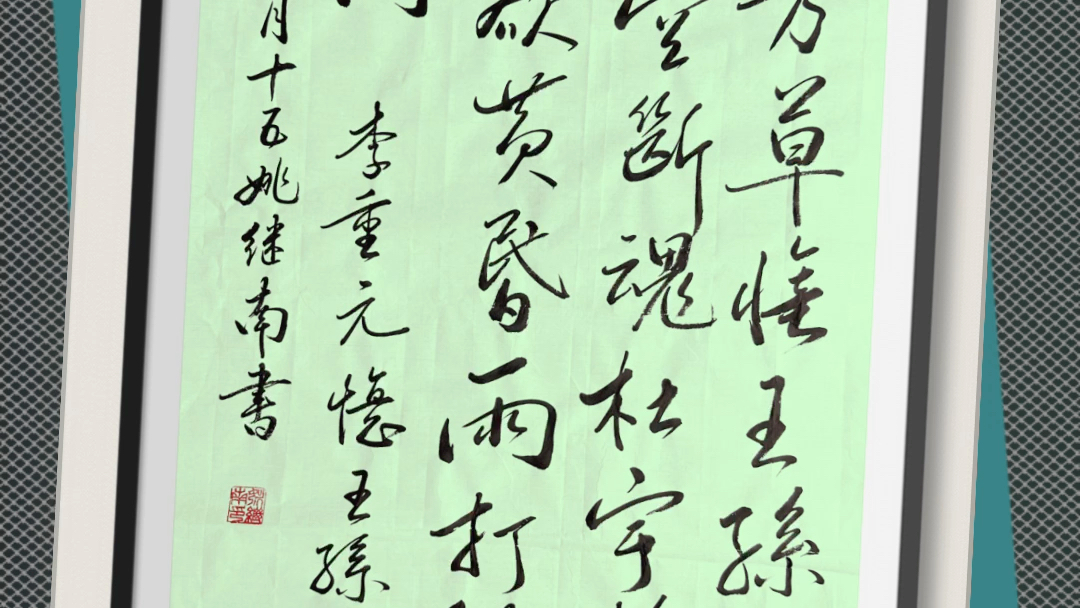 芳草憶王孫
空斷魂杜宇
欲黄昏雨打
李重元憶王孫
月十五姚继南書